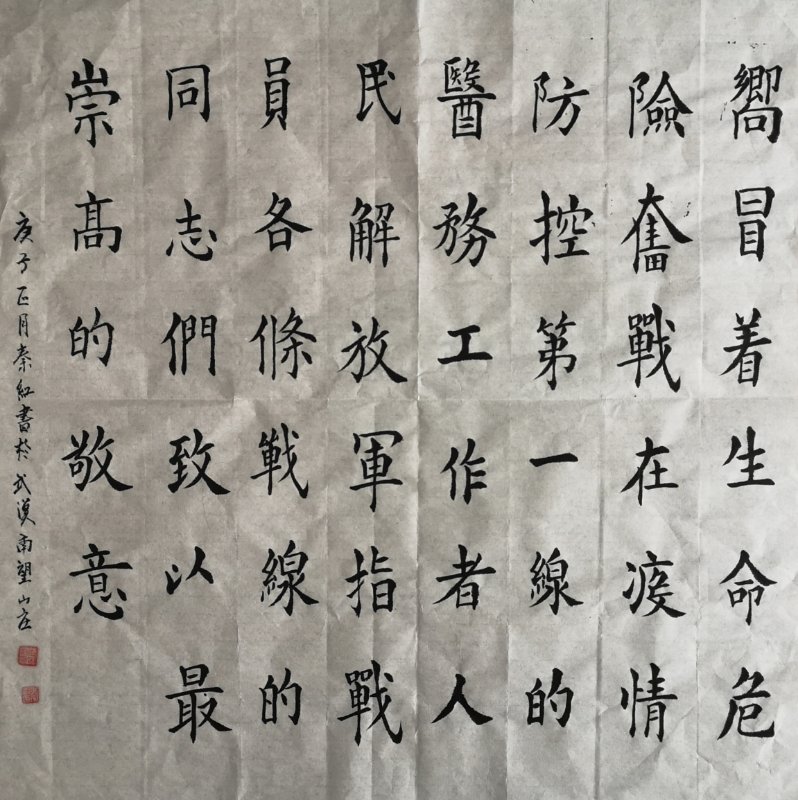 嚮冒着生命危
險奮戰在疫情
防控第一線的
醫務工作者人
民解放軍指戰
員各條戰線的
同志們致以最
崇高的敬意
庚子正月秦紅書於武漢南望山莊